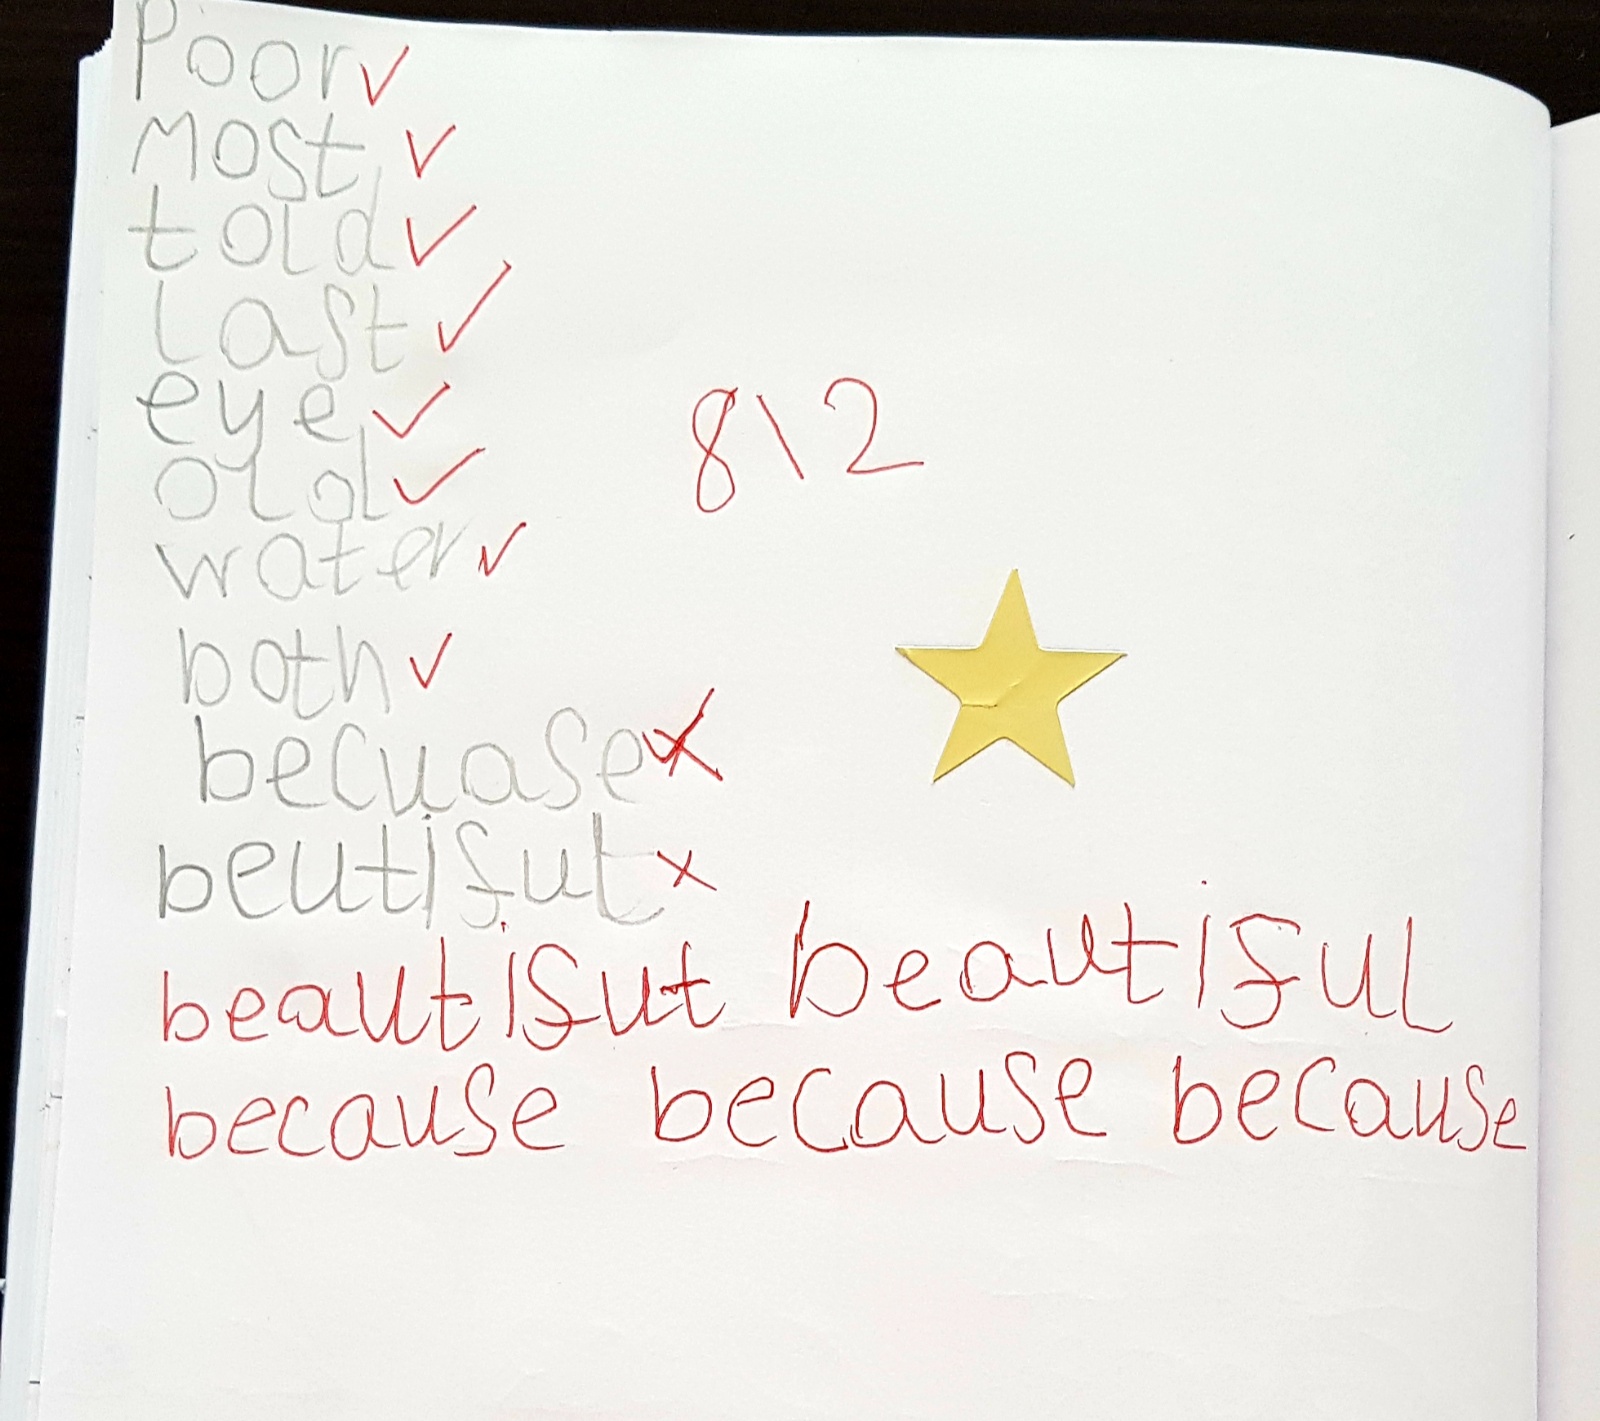 Poor ✓
Most ✓
told ✓
last ✓
eye ✓
old ✓
water ✓
both ✓
becuase ✗
beutiful ✗
8\2
beautifut beautiful
because because because